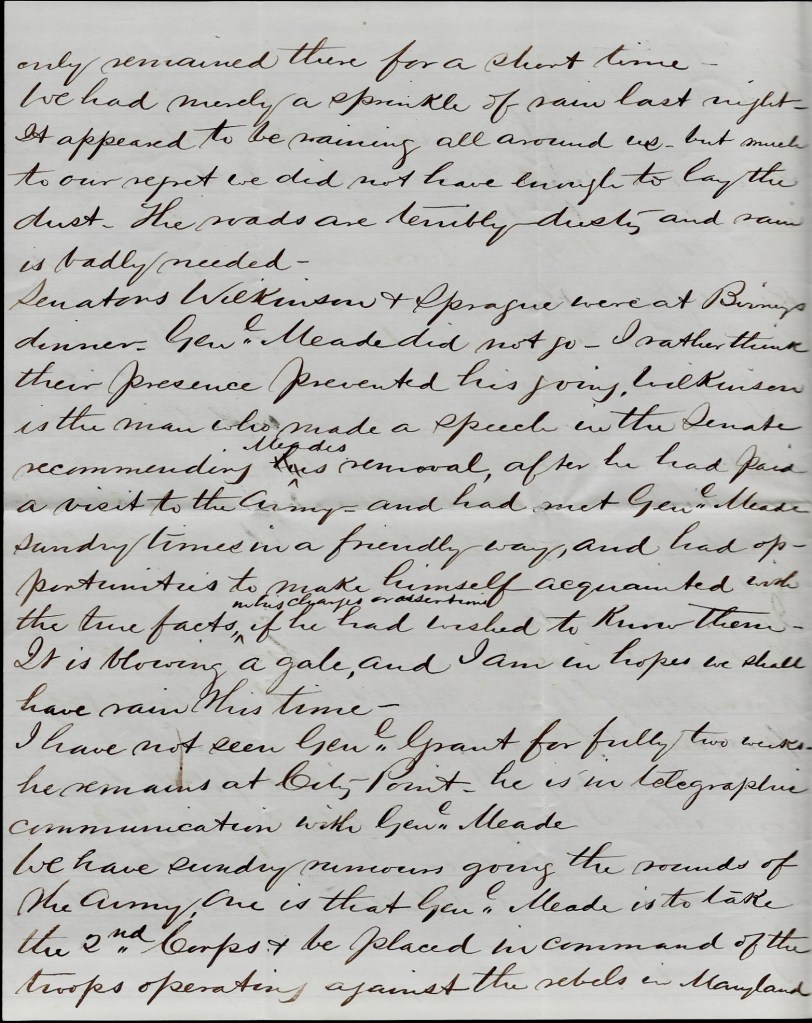 only remained there for a short time –
We had merely a sprinkle of rain last night –
It appeared to be raining all around us – but much
to our regret we did not have enough to lay the
dust – The roads are terribly dusty and rain
is badly needed –
Senators Wilkinson & Sprague were at Birneys
dinner – Genl. Meade did not go – I rather think
their presence prevented his going, Wilkinson
is the man who made a speech in the Senate
Meades
recommending his removal, after he had paid
a visit to the Army – and had met Genl. Meade
sundry times in a friendly way, and had op-
portunities to make himself acquainted with
in his charges or assertions
the true facts, if he had wished to know them –
It is blowing a gale, and I am in hopes we shall
have rain this time –
I have not seen Genl. Grant for fully two weeks –
he remains at City Point – he is in telegraphic
communication with Genl. Meade
We have sundry rumours going the rounds of
the Army, One is that Genl. Meade is to take
the 2nd Corps & be placed in command of the
troops operating against the rebels in Maryland